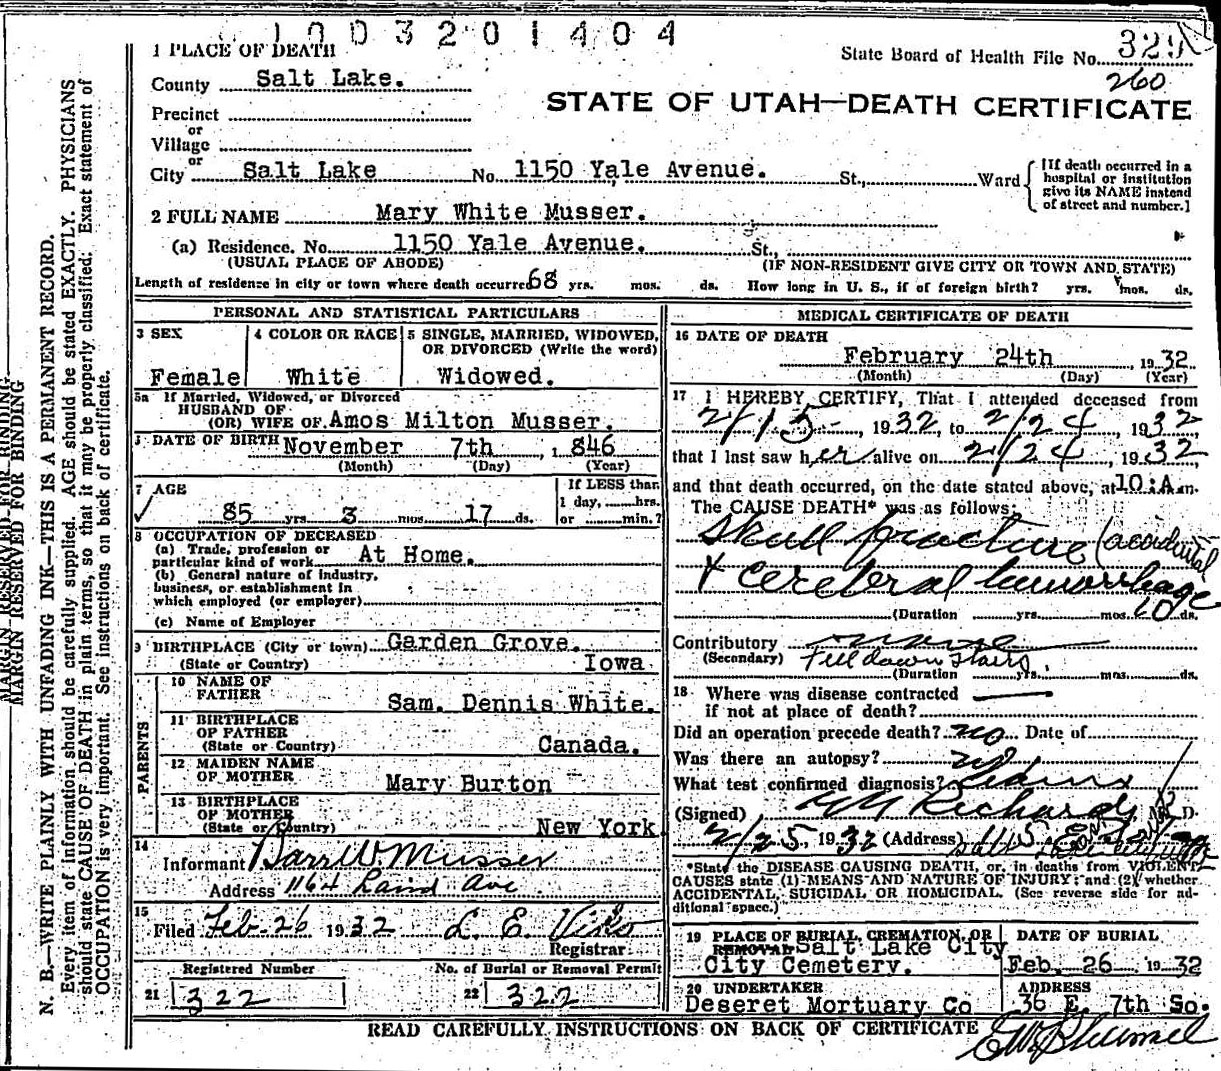 1003201404
1 PLACE OF DEATH
State Board of Health File No.
260
County Salt Lake.
STATE OF UTAH—DEATH CERTIFICATE
Precinct
or
Village
or
City Salt Lake No. 1150 Yale Avenue. St., Ward
[If death occurred in a
hospital or institution
give its NAME instead
of street and number.]
2 FULL NAME Mary White Musser.
(a) Residence. No. 1150 Yale Avenue. St.,
(USUAL PLACE OF ABODE) (IF NON-RESIDENT GIVE CITY OR TOWN AND STATE)
Length of residence in city or town where death occurred 68 yrs. mos. ds. How long in U. S., if of foreign birth? yrs. mos. ds.
PERSONAL AND STATISTICAL PARTICULARS
3 SEX
Female
4 COLOR OR RACE
White
5 SINGLE, MARRIED, WIDOWED,
OR DIVORCED (Write the word)
Widowed.
5a If Married, Widowed, or Divorced
HUSBAND OF
(OR) WIFE OF Amos Milton Musser.
DATE OF BIRTH November 7th , 1 846
(Month) (Day) (Year)
7 AGE
85 yrs 3 mos 17 ds.
If LESS than
1 day, hrs.
or min.?
8 OCCUPATION OF DECEASED
(a) Trade, profession or
particular kind of work At Home.
(b) General nature of industry,
business, or establishment in
which employed (or employer)
(c) Name of Employer
9 BIRTHPLACE (City or town) Garden Grove.
(State or Country) Iowa
PARENTS
10 NAME OF
FATHER Sam. Dennis White.
11 BIRTHPLACE
OF FATHER
(State or Country) Canada.
12 MAIDEN NAME
OF MOTHER Mary Burton
13 BIRTHPLACE
OF MOTHER
(State or Country) New York
14
Informant Barr W Musser
Address 1164 Laird Ave
15
Filed Feb-26 1932 L. E. Viko
Registrar
Registered Number
21 322
No. of Burial or Removal Permit
22 322
MEDICAL CERTIFICATE OF DEATH
16 DATE OF DEATH
February 24th , 1932
(Month) (Day) (Year)
17 I HEREBY CERTIFY, That I attended deceased from
2/15- , 1932, to 2/24 , 1932
that I last saw her alive on 2/24 , 1932
and that death occurred, on the date stated above, at 10:A m.
The CAUSE DEATH* was as follows:
Skull fracture (accidental
+ cerebral hemorrhage
(Duration yrs. mos. 10 ds.
Contributory none
(Secondary) Fell down stairs.
(Duration yrs. mos. ds.
18 Where was disease contracted
if not at place of death?
Did an operation precede death? no Date of
Was there an autopsy? no
What test confirmed diagnosis?
(Signed) G G Richards, M. D.
2/25, 1932 (Address)
*State the DISEASE CAUSING DEATH, or, in deaths from VIOLENT
CAUSES state (1) MEANS AND NATURE OF INJURY; and (2) whether
ACCIDENTAL, SUICIDAL OR HOMICIDAL. (See reverse side for ad-
ditional space.)
19 PLACE OF BURIAL, CREMATION, OR
REMOVAL Salt Lake City
City Cemetery.
DATE OF BURIAL
Feb. 26 1932
20 UNDERTAKER
Deseret Mortuary Co
ADDRESS
36 E. 7th So.
READ CAREFULLY INSTRUCTIONS ON BACK OF CERTIFICATE
MARGIN RESERVED FOR BINDING.
MARGIN RESERVED FOR BINDING
N. B.—WRITE PLAINLY WITH UNFADING INK—THIS IS A PERMANENT RECORD.
Every item of information should be carefully supplied. AGE should be stated EXACTLY. PHYSICIANS
should state CAUSE OF DEATH in plain terms, so that it may be properly classified. Exact statement of
OCCUPATION is very important. See instructions on back of certificate.